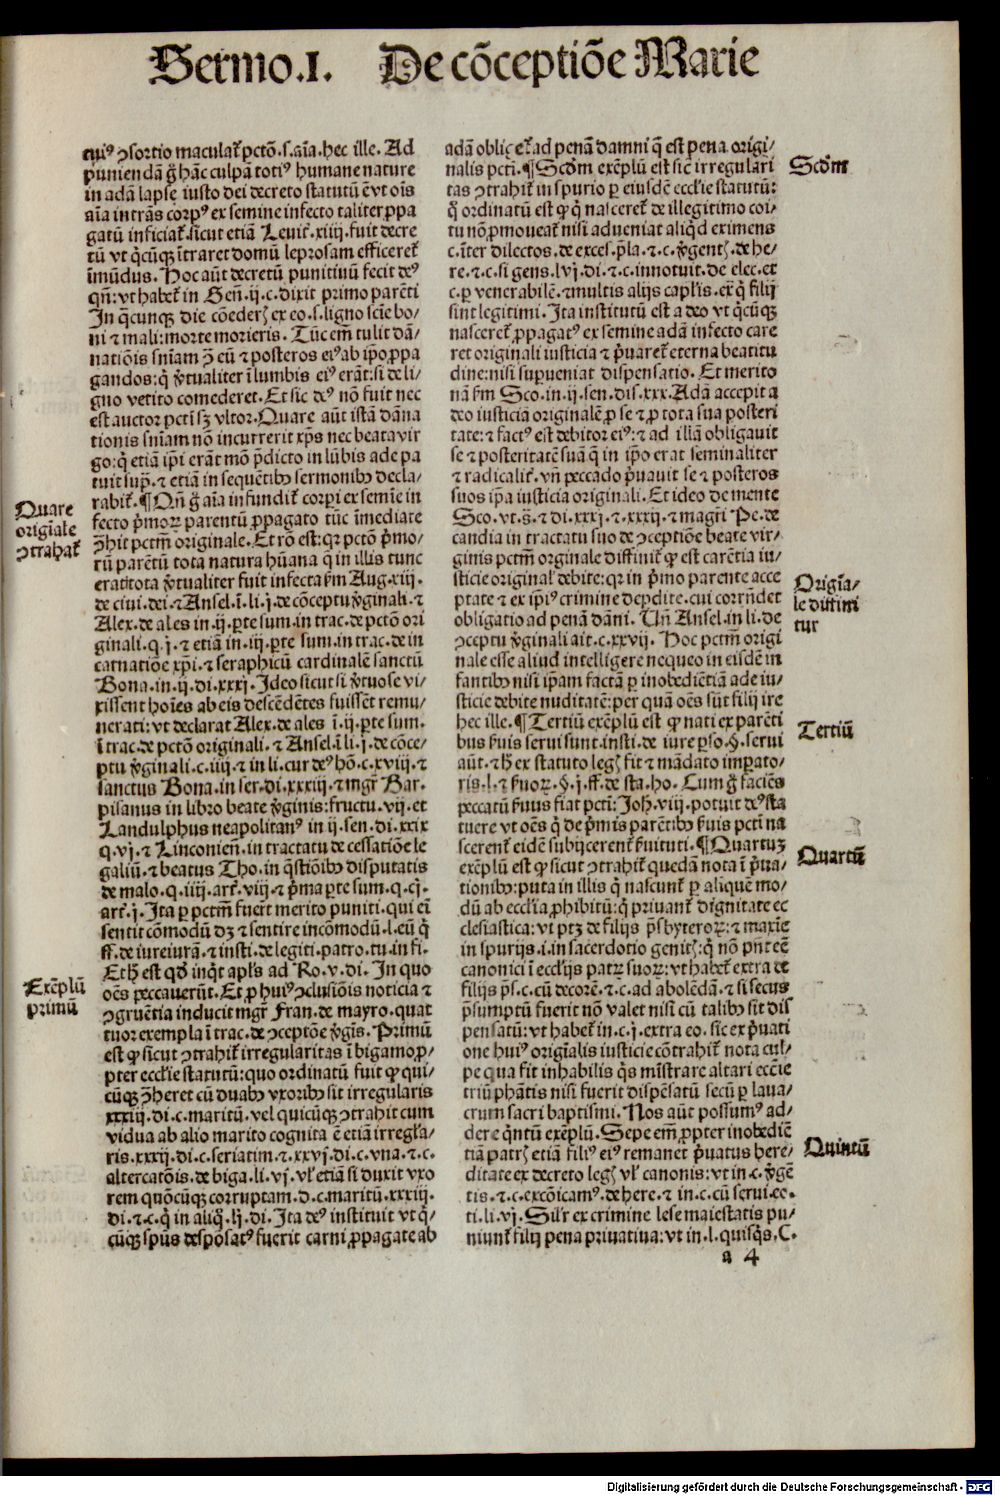 Sermo.I. De cõceptiõe Marie
cuiꝰ ꝯsortio maculat᷑ pctõ.s.aĩa.hec ille. Ad
puniendã g̃ hãc culpã totiꝰ humane nature
in adã lapse iusto dei decreto statutũ ẽ vt oĩs
aĩa intrãs corpꝰ ex semine infecto taliter ꝓpa
gatũ inficiat᷑.sicut etiã Leuit᷑.xiiij.fuit decre
tũ vt q̃cũqꝫ ĩtraret domũ leprosam efficeret᷑
ĩmũdus. Hoc aũt decretũ punitiuũ fecit deꝰ
qñ: vt habet᷑ in Geñ.ij.c.dixit primo parẽti
In q̃cunqꝫ die cõederꝭ ex eo.s.ligno scĩe bo/
ni ⁊ mali: morte morieris. Tũc em̃ tulit dã/
natiõis sniam ꝯ̃ eũ ⁊ posteros eiꝰ ab ip̃o ꝓpa
gandos: q̃ v̓tualiter ĩ lumbis eiꝰ erãt: si de li/
gno vetito comederet. Et sic deꝰ nõ fuit nec
est auctor pcti sꝫ vltor. Quare aũt istã dãna
tionis sniam nõ incurrerit xp̃s nec beata vir
go: q̃ etiã ip̃i erãt mõ p̃dicto in lũbis ade pa
tuit sup̃.⁊ etiã in sequẽtibꝰ sermonibꝰ decla/
rabit᷑.¶ Qñ g̃ aĩa infundit᷑ corpi ex semĩe in
fecto p̃moꝝ parentũ ꝓpagato tũc ĩmediate
ꝯ̃hit pctm̃ originale. Et rõ est: qꝛ pctõ p̃mo/
rũ parẽtũ tota natura hũana q̃ in illis tunc
erat tota v̓tualiter fuit infecta ẜm Aug.xiij.
de ciui.dei.⁊ Ansel.ĩ.li.j.de cõceptu v̓ginali.⁊
Alex.de ales in.ij.ꝑte sum.in trac.de pctõ ori
ginali.q.j.⁊ etiã in.iij.ꝑte sum.in trac.de in
carnatiõe xp̃i.⁊ seraphicũ cardinalẽ sanctũ
Bona.in.ij.di.xxxj. Ideo sicut si v̓tuose vi/
xissent hoĩes ab eis descẽdẽtes fuissẽt remu/
nerati: vt declarat Alex.de ales ĩ.ij.ꝑte sum.
ĩ trac.de pctõ originali.⁊ Ansel.ĩ li.j.de cõce/
ptu v̓ginali.c.iiij.⁊ in li.cur deꝰ hõ.c.xviij.⁊
sanctus Bona.in ser.di.xxxiij.⁊ mgr̃ Bar.
pisanus in libro beate v̓ginis: fructu.vij.et
Landulphus neapolitanꝰ in ij.sen.di.xxix
q.vj.⁊ Linconieñ.in tractatu de cessatiõe le
galiũ.⁊ beatus Tho.in q̃stiõibꝰ disputatis
de malo.q.iiij.art᷑.viij.⁊ p̃ma ꝑte sum.q.cj.
art᷑.j. Ita ꝑ pctm̃ fuer̃t merito puniti.qui em̃
sentit cõmodũ dꝫ ⁊ sentire incõmodũ.l.eũ q̃
ff.de iureiurã.⁊ insti.de legiti.patro.tu.in fi.
Et h̓ est qd̓ inq̃t apl̃s ad Ro.v.di. In quo
oẽs peccauerũt. Et ꝓ huiꝰ ꝯclusiõis noticia ⁊
ꝯgruẽtia inducit mgr̃ Fran.de mayro.quat
tuor exempla ĩ trac.de ꝯceptiõe v̓gĩs. Primũ
est ꝙ sicut ꝯtrahit᷑ irregularitas ĩ bigamo ꝓ/
pter eccl̃ie statutũ: quo ordinatũ fuit ꝙ qui/
cũqꝫ ꝯ̃heret cũ duabꝰ vxoribꝰ sit irregularis
xxxiij.di.c.maritũ.vel quicũqꝫ ꝯtrahit cum
vidua ab alio marito cognita ẽ etiã irregl̃a/
ris.xxxij.di.c.seriatim.⁊.xxvj.di.c.vna.⁊.c.
altercatõis.de biga.li.vj.vl̓ etiã si duxit vxo
rem quõcũqꝫ corruptam.d.c.maritũ.xxxiij.
di.⁊.c.q̃ in aliq̃.lj.di. Ita deꝰ instituit vt q̃/
cũqꝫ spũs despõsatꝰ fuerit carni ꝓpagate ab
Quare
origĩale
ꝯtrahat᷑
Exẽplũ
primũ
adã oblicet᷑ ad penã damni q̃ est pena origi/
nalis pcti.¶ Scḋm exẽplũ est: sic̃ irregulari
tas ꝯtrahit᷑ in spurio ꝑ eiusdẽ eccl̃ie statutũ:
q̃ ordinatũ est ꝙ q̃ nasceret᷑ de illegitimo coi/
tu nõ ꝓmoueat᷑ nisi adueniat aliq̃d eximens
c.ĩter dilectos.de exces.p̃la.⁊.c.v̓gentꝭ.de he/
re.⁊.c.si gens.lvj.di.⁊.c.innotuit.de elec.et
c.ꝑ venerabilẽ.⁊ multis alijs capl̃is.ex q̃ filij
sint legitimi. Ita institutũ est a deo vt q̃cũqꝫ
nasceret᷑ ꝓpagatꝰ ex semine adã infecto care
ret originali iusticia ⁊ p̃uaret᷑ eterna beatitu
dine: nisi supueniat dispensatio. Et merito
nã ẜm Sco.in.ij.sen.dis.xxx. Adã accepit a
deo iusticiã originalẽ ꝓ se ⁊ ꝓ tota sua posteri
tate: ⁊ factꝰ est debitor eiꝰ: ⁊ ad illã obligauit
se ⁊ posteritatẽ suã q̃ in ip̃o erat seminaliter
⁊ radicalit᷑.vñ peccado p̃uauit se ⁊ posteros
suos ip̃a iusticia originali. Et ideo de mente
Sco.vt.s̃.⁊ di.xxxj.⁊.xxxij.⁊ magr̃i Pe.de
candia in tractatu suo de ꝯceptiõe beate vir/
ginis pctm̃ orginale diffinit᷑ ꝙ est carẽtia iu/
sticie original᷑ debite: qꝛ in p̃mo parente acce
ptate ⁊ ex ip̃iꝰ crimine deꝑdite.cui corrñdet
obligatio ad penã dãni. Uñ Ansel.in li.de
ꝯceptu v̓ginali ait.c.xxvij. Hoc pctm̃ origi
nale esse aliud intelligere nequeo in eisdẽ in
fantibꝰ nisi ip̃am factã ꝑ inobediẽtiã ade iu/
sticie debite nuditatẽ: per quã oẽs sũt filij ire
hec ille.¶ Tertiũ exẽplũ est ꝙ nati ex parẽti
bus ẜuis serui sunt.insti.de iure ꝑso.§.serui
aũt.⁊ h̓ ex statuto legꝭ fit ⁊ mãdato imꝑato/
ris.l.⁊ ẜuoꝝ.§.j.ff.de sta.ho. Cum g̃ faciẽs
peccatũ ẜuus fiat pcti: Joh̓.viij.potuit deꝰ sta
tuere vt oẽs q̃ de p̃mis parẽtibꝰ ẜuis pcti na
scerent᷑ eidẽ subijcerent᷑ ẜuituti.¶ Quartuꝫ
exẽplũ est ꝙ sicut ꝯtrahit᷑ quedã nota ĩ p̃ua/
tionibꝰ: puta in illis q̃ nascunt᷑ ꝑ aliquẽ mo/
dũ ab eccl̃ia ꝓhibitũ: q̃ priuant᷑ dignitate ec
clesiastica: vt ptꝫ de filijs p̃sbyteroꝝ: ⁊ maxĩe
in spurijs.i.in sacerdotio genitꝭ: q̃ nõ pñt eẽ
canonici ĩ eccl̃ijs patꝝ suoꝝ: vt habet᷑ extra de
filijs p̃s.c.cũ decorẽ.⁊.c.ad abolẽdã.⁊ si secus
p̃sumptũ fuerit nõ valet nisi cũ talibꝰ sit dis
pensatũ: vt habet᷑ in.c.j.extra eo.sic ex p̃uati
one huiꝰ origĩalis iusticie cõtrahit᷑ nota cul/
pe qua fit inhabilis q̃s mĩstrare altari eccẽie
triũphãtis nisi fuerit dispẽsatũ secũ ꝑ laua/
crum sacri baptismi. Nos aũt possumꝰ ad/
dere q̃ntũ exẽplũ. Sepe em̃ ꝓpter inobediẽ
tiã patrꝭ etiã filiꝰ eiꝰ remanet p̃uatus here/
ditate ex decreto legꝭ vl̓ canonis: vt in.c.v̓gẽ
tis.⁊.c.excõicamꝰ.de here.⁊ in.c.cũ serui.eo.
ti.li.vj. Silr̃ ex crimine lese maiestatis pu/
niunt᷑ filij pena priuatiua: vt in.l.quisq̃s.C.
a 4
Scḋm
Origĩa/
le diffini
tur
Tertiũ
Quartũ
Quintũ
Digitalisierung gefördert durch die Deutsche Forschungsgemeinschaft - DFG